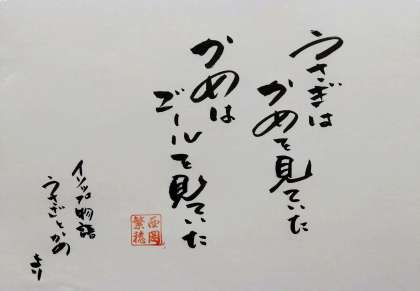 うさぎは
かめを見ていた
かめは
ゴールを見ていた
イソップ物語
うさぎとかめ
より